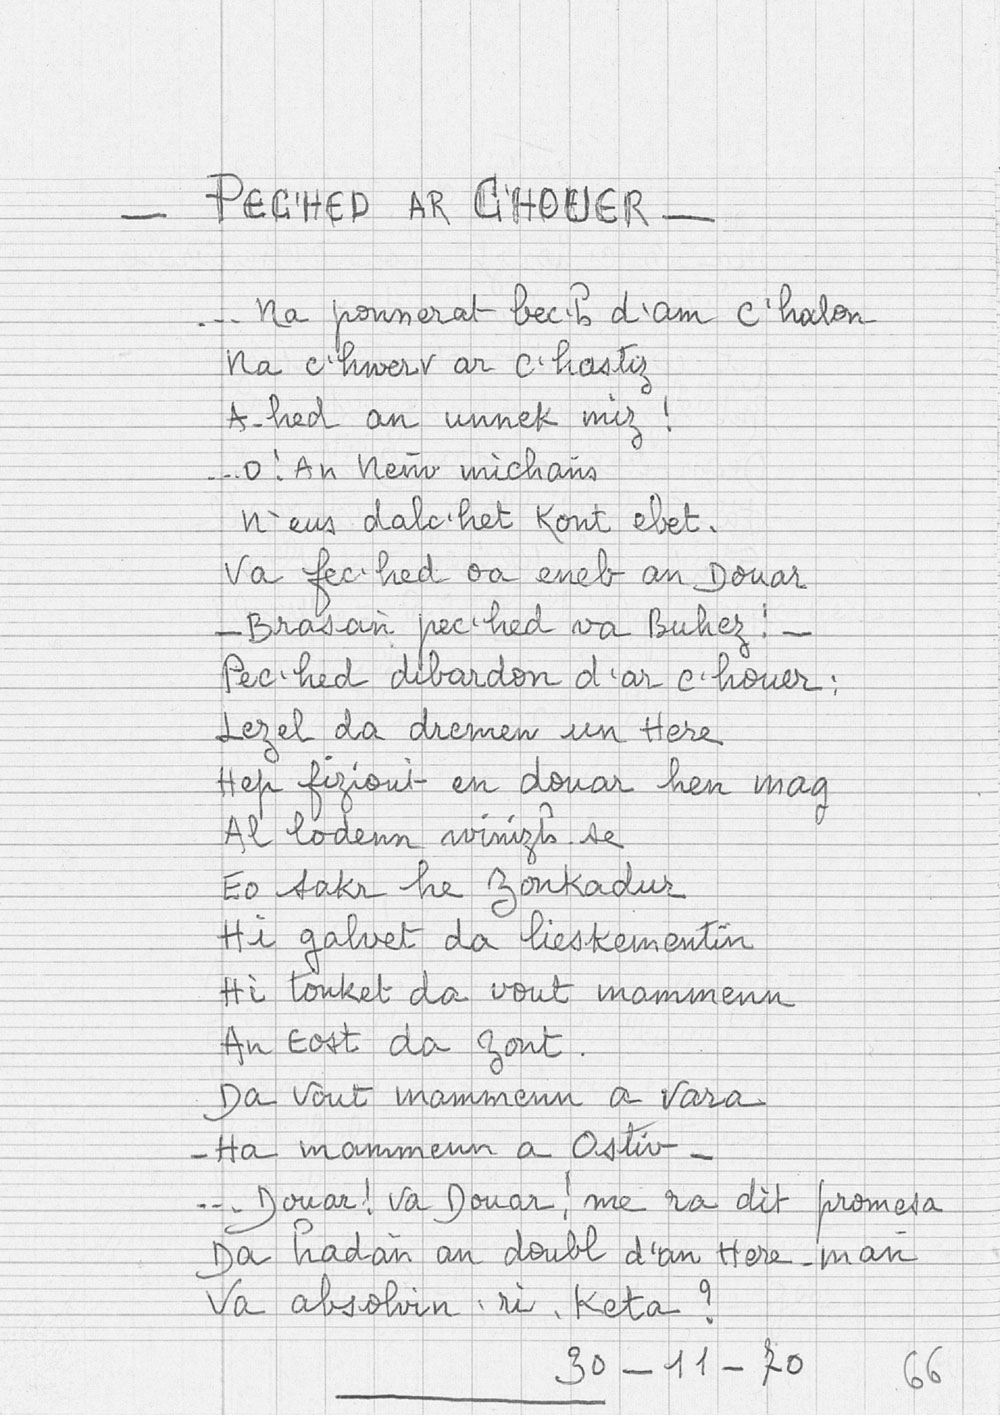 — PEC'HED AR C'HOUER —
... Na ponnerat bec'h d'am c'halon
Na c'hwerv ar c'hastiz
A-hed an unnek miz !
... O ! An Neñv michañs
N'eus dalc'het Kont ebet.
Va fec'hed oa eneb an Douar
— Brasañ pec'hed va Buhez ! —
Pec'hed dibardon d'ar c'houer :
Lezel da dremen un Here
Hep fiziout en douar hen mag
Al lodenn winizh-se
Eo sakr he zonkadur
Hi galvet da lieskementiñ
Hi tonket da vout mammenn
An Eost da zont.
Da vout mammenn a vara
- Ha mammenn a Ostiv -
... Douar ! Va Douar ! me ra dit promesa
Da hadañ an doubl d'an Here-mañ
Va absolvin 'ri, Keta ?
30 - 11 - 70 66